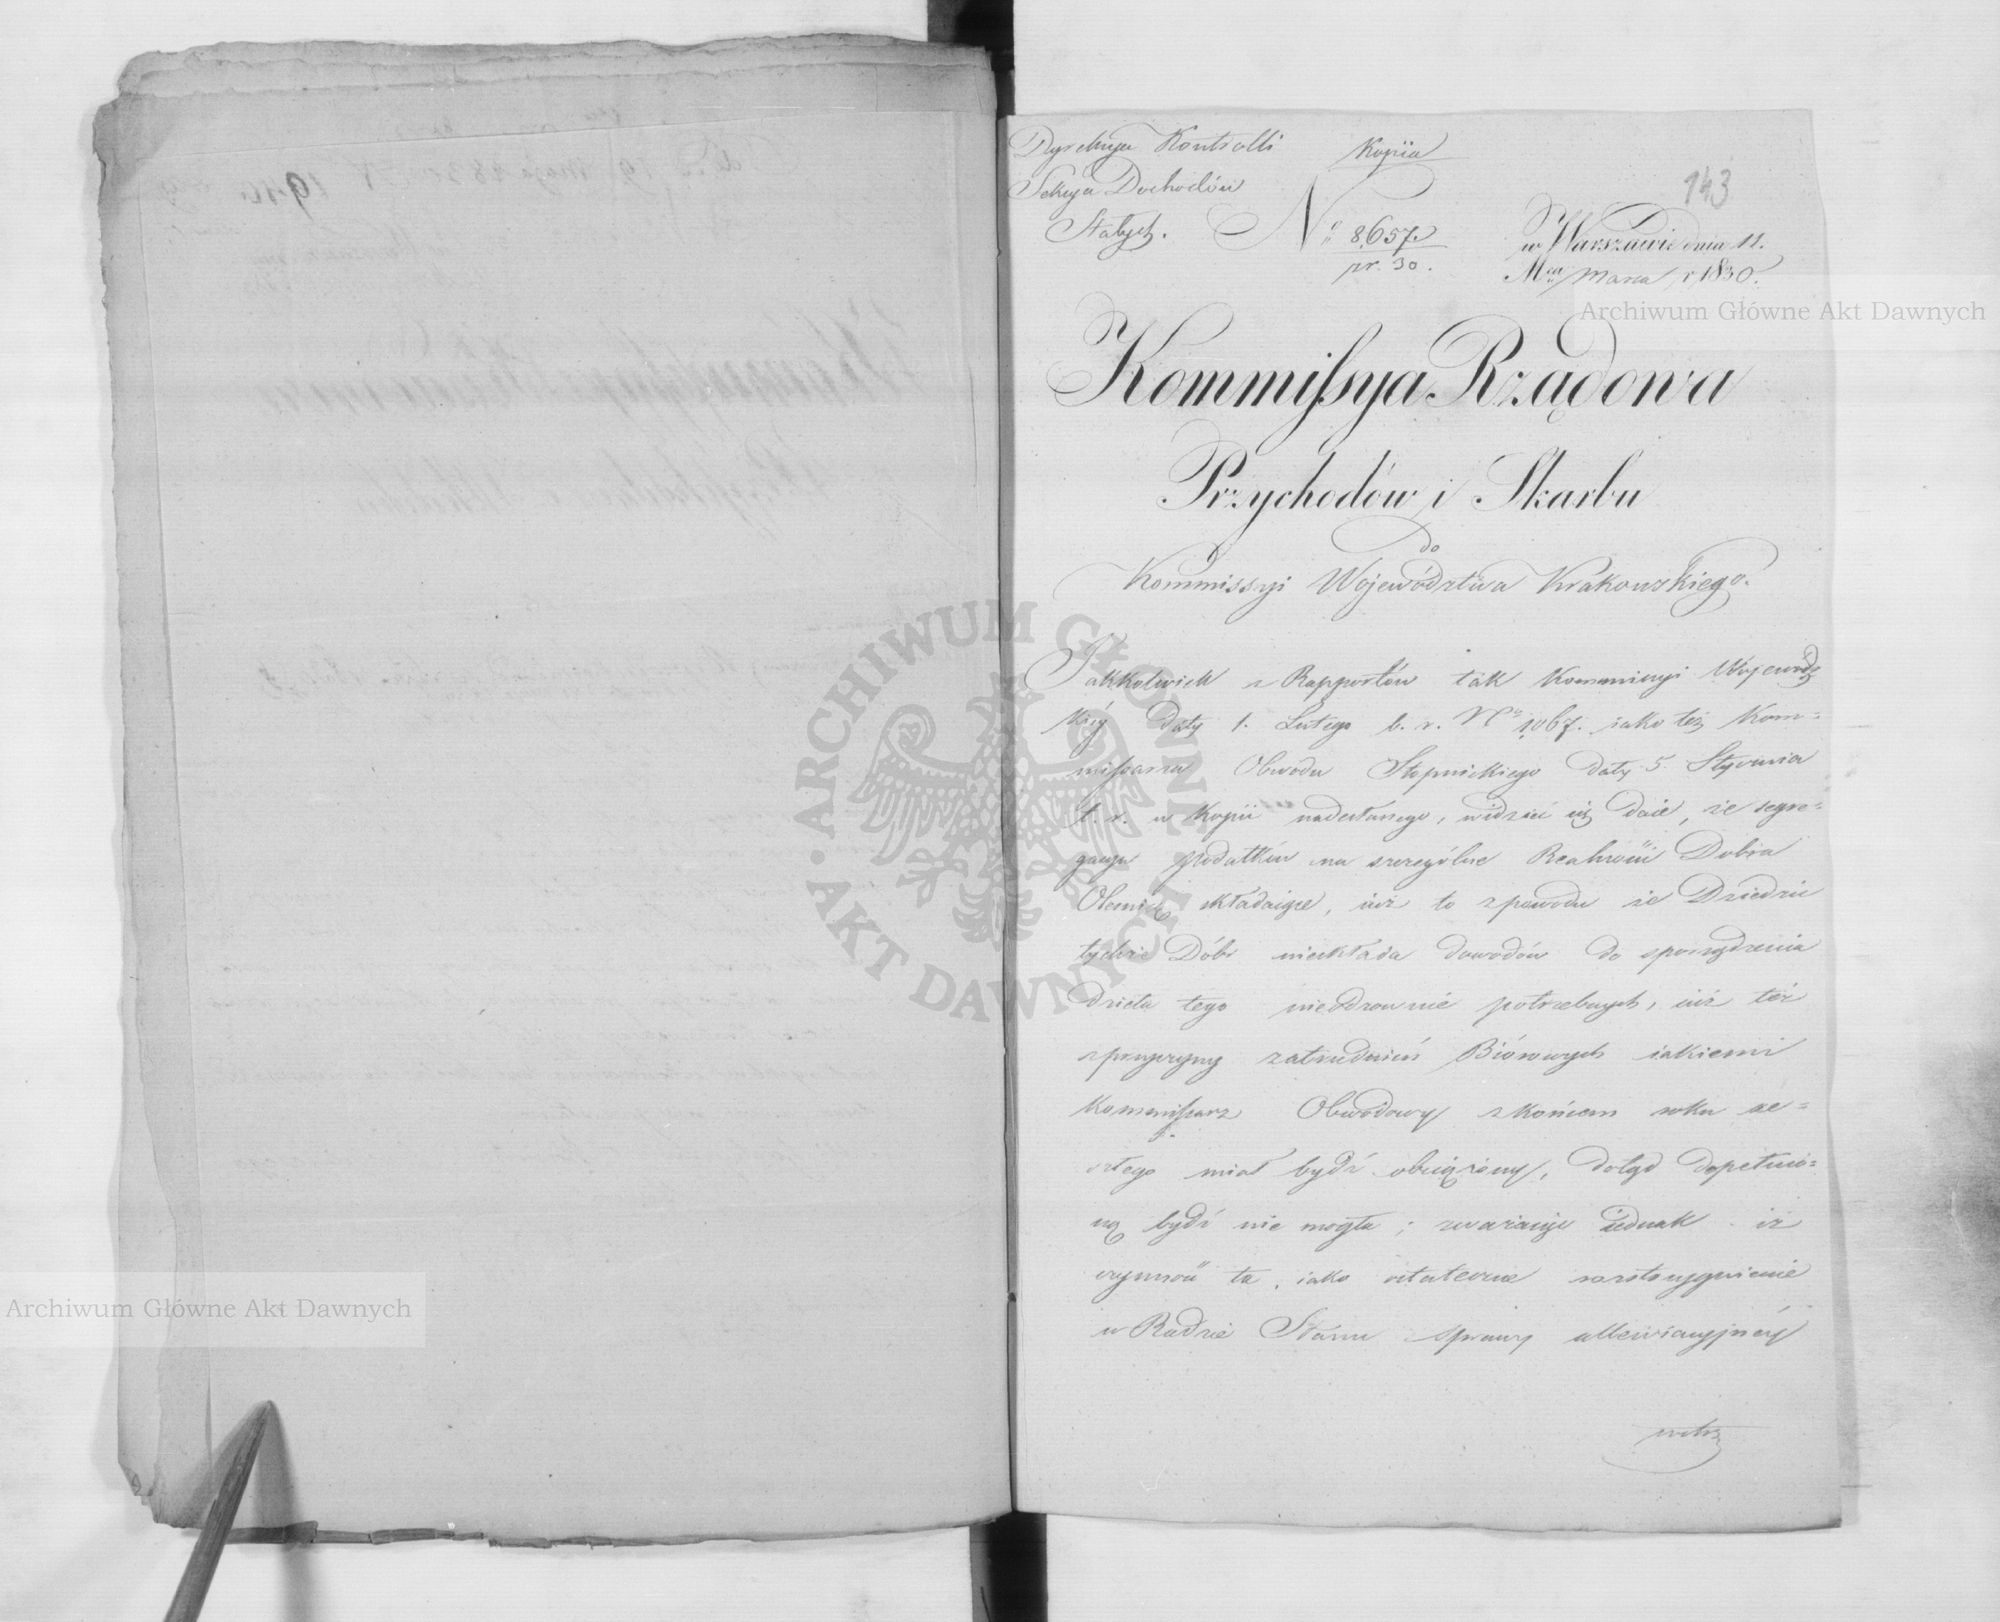 Dyrekcya Kontrolli
Sekcya Dochodów
Stałych.
Kopiia
143
No 8,657.
pr. 30.
w Warszawie dnia 11.
Mca Marca r 1830.
Kommissya Rządowa
Przychodów i Skarbu
do
Kommissyi Województwa Krakowskiego.
Jakkolwiek z Rapportów tak Kommissyi Wojewódz
kiéy daty 1. Lutego b. r. Nro 1,067. iako też Kom=
missarza Obwodu Stopnickiego daty 5 Stycznia
t. r. w kopii nadesłanego, widzieć się daie, że segre=
gacya podatków na szczególne Realności Dobra
Oleśnicę składaiące, iuż to z powodu że Dziedzic
tychże Dóbr nieskłada dowodów do sporządzenia
dzieła tego nieodzownie potrzebnych, iuż też
z przyczyny zatrudnień Biórowych iakiemi
Kommissarz Obwodowy z końcem roku ze=
szłego miał bydź obciążony, dotąd dopełnio=
ną bydź nie mogła; zważaiąc iednak iż
czynność ta, iako ostateczne rozstrzygnienie
w Radzie Stanu sprawy allewiacyjnéy
Archiwum Główne Akt Dawnych
Archiwum Główne Akt Dawnych
ARCHIWUM GŁÓWNE · AKT DAWNYCH ·